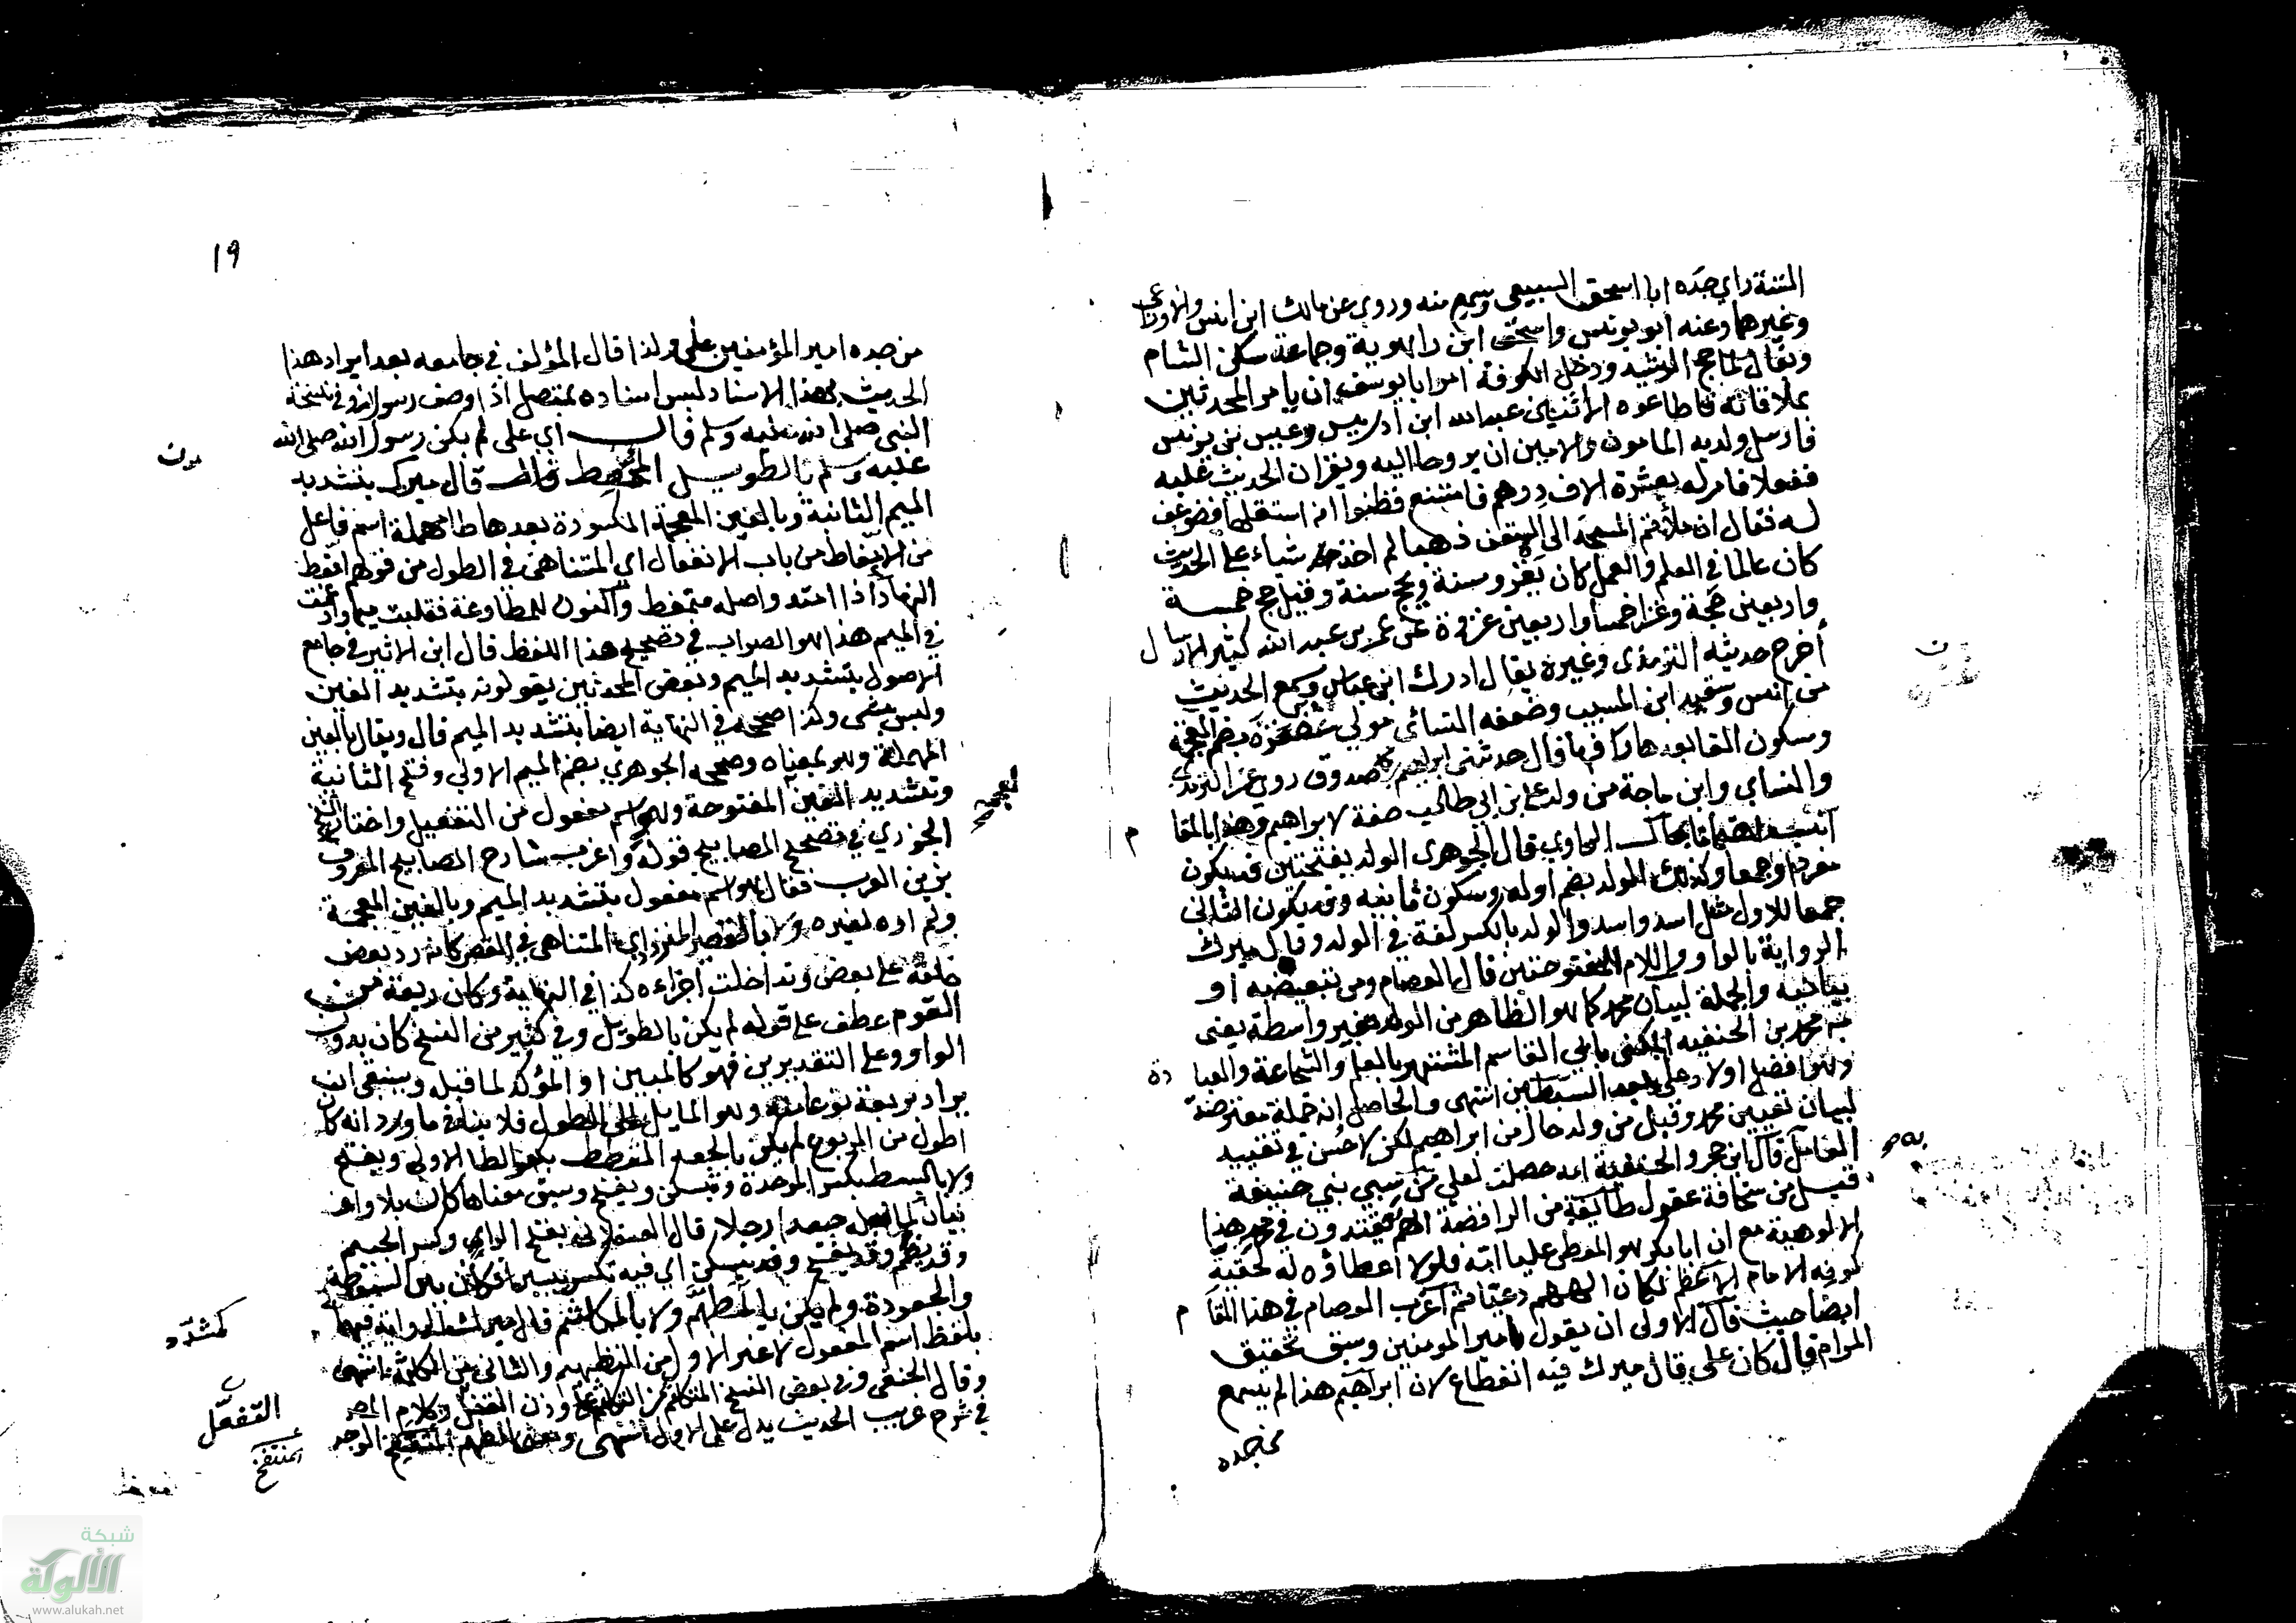 الستة راي جده ابا اسحق السبيعي وسمع منه وروي عن مالك ابن انس والاوزاعي
وغيرهما وعنه ابو يونس واسحق ابن راهوية وجماعة سكن الشام
ويقال لما حج الرشيد ودخل الكوفة امر ابا يوسف ان يامر المحدثين
بملاقاته فاطاعوه الا اثنين عبد الله ابن ادريس وعيسى بن يونس
فارسل ولديه المامون والامين ان يروحا اليه ويقران الحديث عليه
ففعلا فامر له بعشرة الاف درهم فامتنع فظنوا انه استقلها فضوعف
له فقال ان ملأتم المسجد الى السقف ذهبا لم اخذ شياء على الحديث
كان عالما في العلم والعمل كان يغزو سنة ويحج سنة وقيل حج خمسة
واربعين حجة وغزا خمسا واربعين غزوة عن عمر بن عبد الله كثير الارسال
أخرج حديثه الترمذي وغيره يقال ادرك ابن عباس وسمع الحديث
من انس وسعيد ابن المسيب وضعفه النسائي مولى غفرة بضم المعجمة
وسكون الفا بعدها را فها قال حدثني ابراهيم صدوق روى عنه الترمذي
والنساي وابن ماجة من ولد علي بن ابي طالب صفة لابراهيم وهذا بالمقا م
انسب الحاوي قال الجوهري الولد بفتحتين قد يكون
مفردا وجمعا وكذلك الولد بضم اوله وسكون ثانيه وقد يكون الثاني
جمعا للاول مثل اسد واسد والولد بالكسر لغة في الولد وقال ميرك
الرواية بالواو واللام المفتوحتين قال العصام ومن تبعيضيه او
بيانيه والجملة لبيان محمد كما هو الظاهر من الولد بغير واسطة يعني
به محمد بن الحنفيه المكنى بابي القاسم المشتهر بالعلم والشجاعة والعبا دة
وهو افضل اولاد علي بعد السبطين انتهى والحاصل انه جملة معترضة
لبيان تعيين محمد وقيل من ولد حال من ابراهيم لكن لاحسن في تقييد
العامل قال ابن حجر والحنفية امه حصلت لعلي من سبي بني حنيفة
قيل من سخافة عقول طايفة من الرافضة انهم يعتقدون في محمد هذا
الالوهية مع ان ابا بكر هو المعطى عليا امه فلولا اعطاؤه له لحقية
كونه الامام الاعظم لكان الههم دعيا ثم اغرب العصام في هذا المقا م
ايضا حيث قال الاولى ان يقول امير المومنين وسبق تحقيق
المرام قال كان علي قال ميرك فيه انقطاع لان ابراهيم هذا لم يسمع
من جده
١٩
من جده امير المؤمنين علي ولذا قال المؤلف في جامعه بعد ايراد هذا
الحديث بهذا الاسناد ليس اسناده بمتصل اذا وصف رسول الله وفي نسخة
النبي صلى الله عليه وسلم قال اي علي لم يكن رسول الله صلى الله
عليه وسلم بالطويل الممغط قال ميرك بتشديد
الميم الثانية وبالغين المعجمة المكسورة بعدها طا مهملة اسم فاعل
من الامغاط من باب الانفعال اي المتناهي في الطول من قولهم امغط
النهار اذا امتد واصله منمغط والنون للمطاوعة فقلبت ميما وادغمت
في الميم هذا هو الصواب في تصحيح هذا اللفظ قال ابن الاثير في جامع
الاصول بتشديد الميم وبعض المحدثين يقولونه بتشديد الغين
وليس بشي وكذا صححه في النهاية ايضا بتشديد الميم قال ويقال بالعين
المهملة وهو بمعناه وصححه الجوهري بضم الميم الاولى وفتح الثانية
وتشديد الغين المفتوحة وهو اسم مفعول من التفعيل واختاره الشيخ
الجزري في تصحيح المصابيح قوله واغرب شارح المصابيح المعروف
بزين العرب فقال هو اسم مفعول بتشديد الميم وبالغين المعجمة
ولم اره لغيره ولا بالقصير المتردد اي المتناهي في القصر كانه رد بعض
خلقه على بعض وتداخلت اجزاءه كذا في النهاية وكان ربعة من
القوم عطف على قوله لم يكن بالطويل وفي كثير من النسخ كان بدون
الواو وعلى التقديرين فهو كالمبين او المؤكد لما قبله وينبغي ان
يراد بربعة نوعا منه وهو المايل الى الطول فلا ينافي ما ورد انه كان
اطول من المربوع لم يكن بالجعد القطط بكسر الطا الاولى ويفتح
ولا بالسبط بكسر الموحدة وتسكن ويفتح وسبق معناها كان بلا واو
بيان لما قبل جعدا رجلا قال العسقلاني بفتح الراي وكسر الجيم
وقد يضم وقد يفتح وقد يسكن اي فيه تكسر يسير فكان بين السبوطة
والجعودة ولم يكن بالمطهم ولا بالمكلثم قال ميرك الرواية فيهما
بلفظ اسم المفعول لا غير الاول من التطهيم والثاني من الكلثمة انتهى
وقال الحنفي وفي بعض النسخ المتكلثم من التكلثم على وزن التفعلل وكلام
في شرح غريب الحديث يدل على الاول انتهى ومعنى المطهم المنتفخ الوجه
كمشدد
المنتفخ